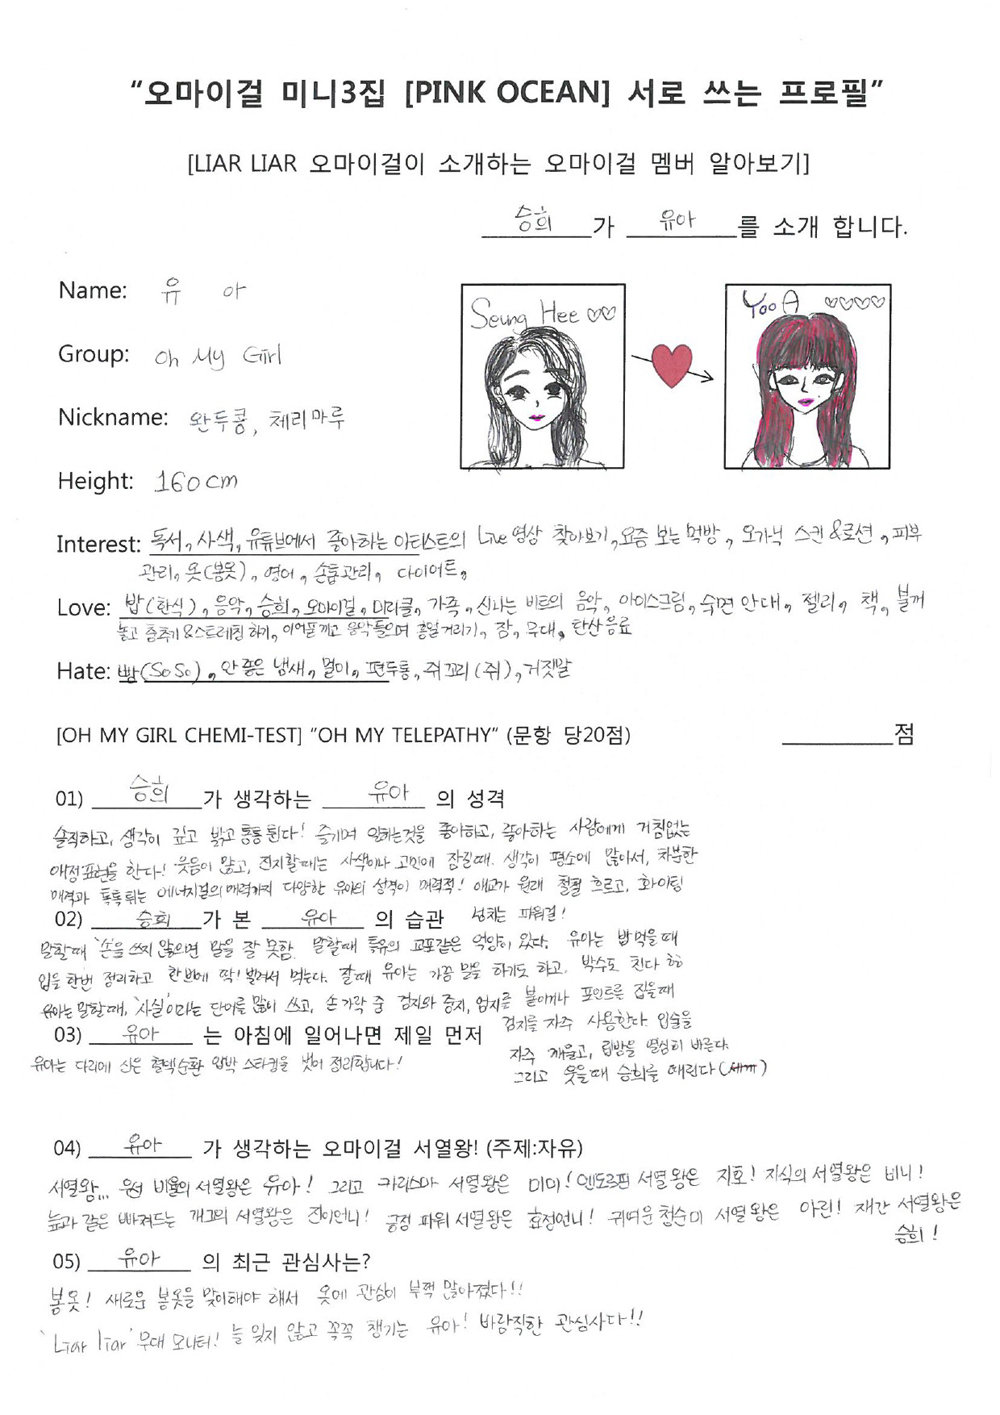 “오마이걸 미니3집 [PINK OCEAN] 서로 쓰는 프로필”
[LIAR LIAR 오마이걸이 소개하는 오마이걸 멤버 알아보기]
승희가 유아를 소개 합니다.
Name: 유 아
Seung Hee ♡♡
YooA ♡♡♡♡
Group: Oh My Girl
Nickname: 완두콩, 체리마루
Height: 160cm
Interest: 독서, 사색, 유튜브에서 좋아하는 아티스트의 Live 영상 찾아보기, 요즘 보는 먹방, 오가닉 스킨&로션, 피부
관리, 옷(봄옷), 영어, 손톱관리, 다이어트,
Love: 밥(한식), 음악, 승희, 오마이걸, 미라클, 가족, 신나는 비트의 음악, 아이스크림, 수면 안대, 젤리, 책, 불께
놓고 춤추기&스트레칭 하기, 이어폰끼고 음악들으며 흥얼거리기, 잠, 무대, 탄산음료
Hate: 빵(SoSo), 안 좋은 냄새, 멀미, 편두통, 쥐꼬리(쥐), 거짓말
[OH MY GIRL CHEMI-TEST] “OH MY TELEPATHY” (문항 당20점) 점
01) 승희가 생각하는 유아 의 성격
솔직하고, 생각이 깊고 밝고 통통 튄다! 즐기며 일하는것을 좋아하고, 좋아하는 사람에게 거침없는
애정표현을 한다! 웃음이 많고, 진지할때는 사색이나 고민에 잠길때. 생각이 평소에 많아서, 차분한
매력과 톡톡튀는 에너지걸의 매력까지 다양한 유아의 성격이 매력적! 애교가 원래 철철 흐르고, 화이팅
넘치는 파워걸!
02) 승희가 본 유아 의 습관
말할때 '손'을 쓰지 않으면 말을 잘 못함. 말할때 특유의 교포같은 억양이 있다. 유아는 밥 먹을 때
입을 한번 정리하고 한번에 딱! 벌려서 먹는다. 잘때 유아는 가끔 말을 하기도 하고, 박수도 친다 하하
유아는 말할때, '사실'이라는 단어를 많이 쓰고, 손가락 중 검지와 중지, 엄지를 붙이거나 포인트를 집을때
검지를 자주 사용한다. 입술을
자주 깨물고, 립밤을 열심히 바른다.
그리고 웃을때 승희를 때린다
03) 유아 는 아침에 일어나면 제일 먼저
유아는 다리에 신은 혈액순환 압박 스타킹을 벗어 정리합니다!
04) 유아 가 생각하는 오마이걸 서열왕! (주제:자유)
서열왕... 우선 비율의 서열왕은 유아! 그리고 카리스마 서열왕은 미미! 엔도르핀 서열왕은 지호! 지식의 서열왕은 비니!
늪과 같은 빠져드는 개그의 서열왕은 진이언니! 긍정 파워 서열왕은 효정언니! 귀여운 청순미 서열왕은 아린! 재간 서열왕은
승희!
05) 유아 의 최근 관심사는?
봄옷! 새로운 봄옷을 맞이해야 해서 옷에 관심이 부쩍 많아졌다!!
'Liar liar' 무대 모니터! 늘 잊지 않고 꼭꼭 챙기는 유아! 바람직한 관심사다!!